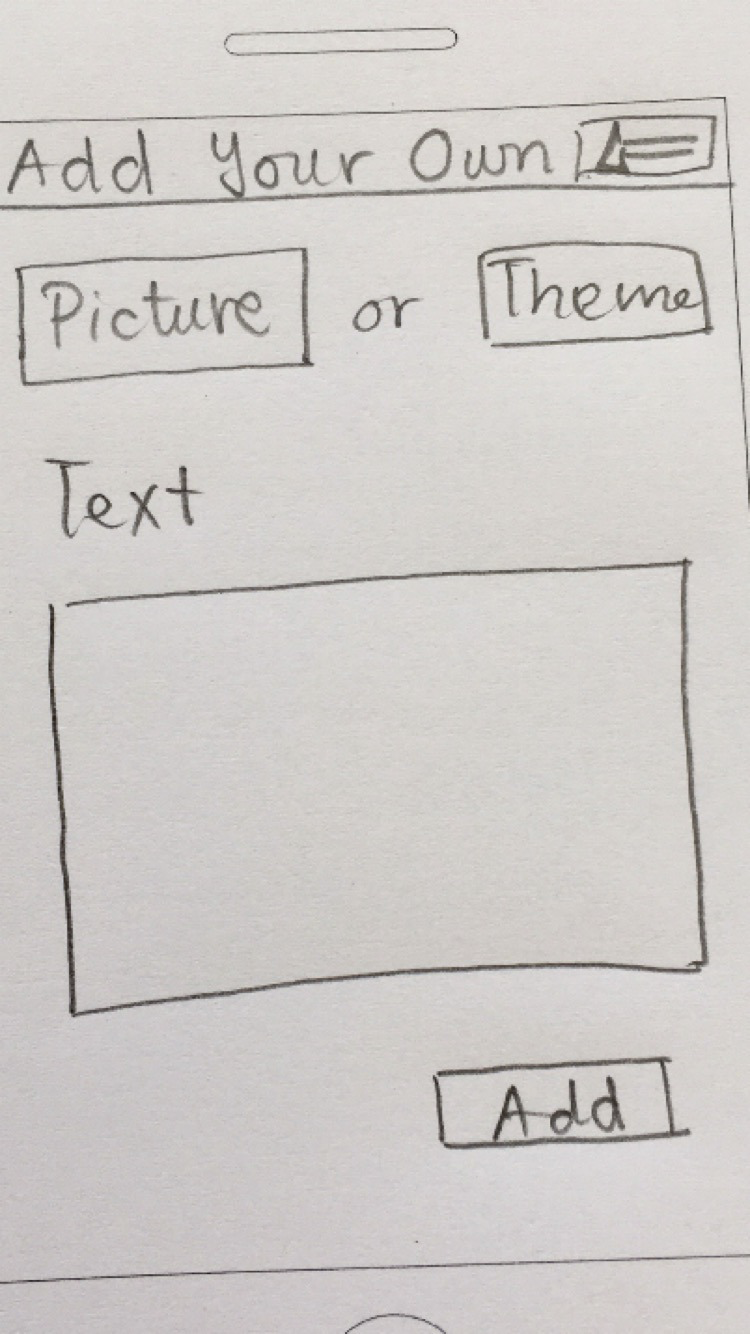 Add Your Own
Picture or Theme
Text
Add